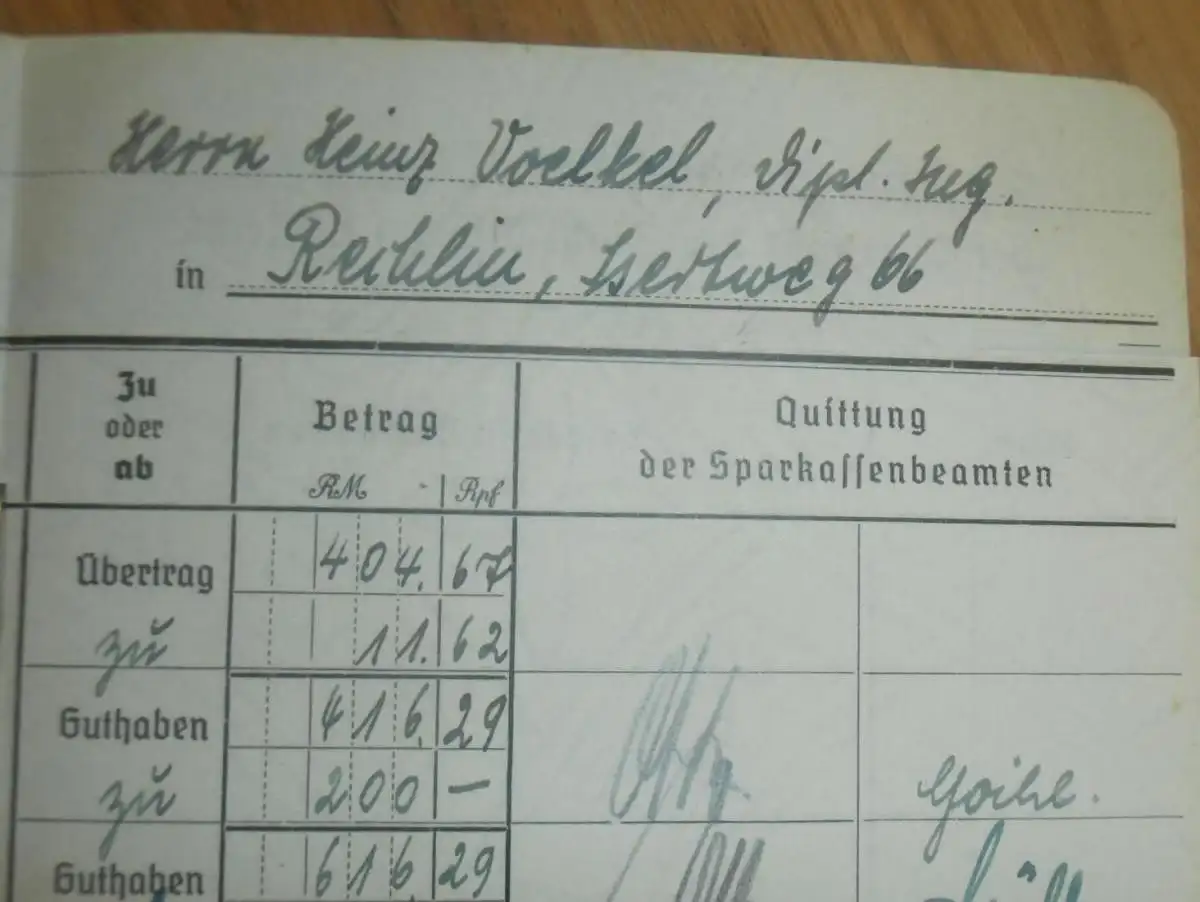 Herrn Heinz Voelkel, Dipl. Ing.
in Rechlin, 66
Zu oder ab
Betrag
RM Rpf
Quittung
der Sparkassenbeamten
Übertrag 404. 67
zu 11. 62
Guthaben 416. 29
zu 200 —
Guthaben 616. 29